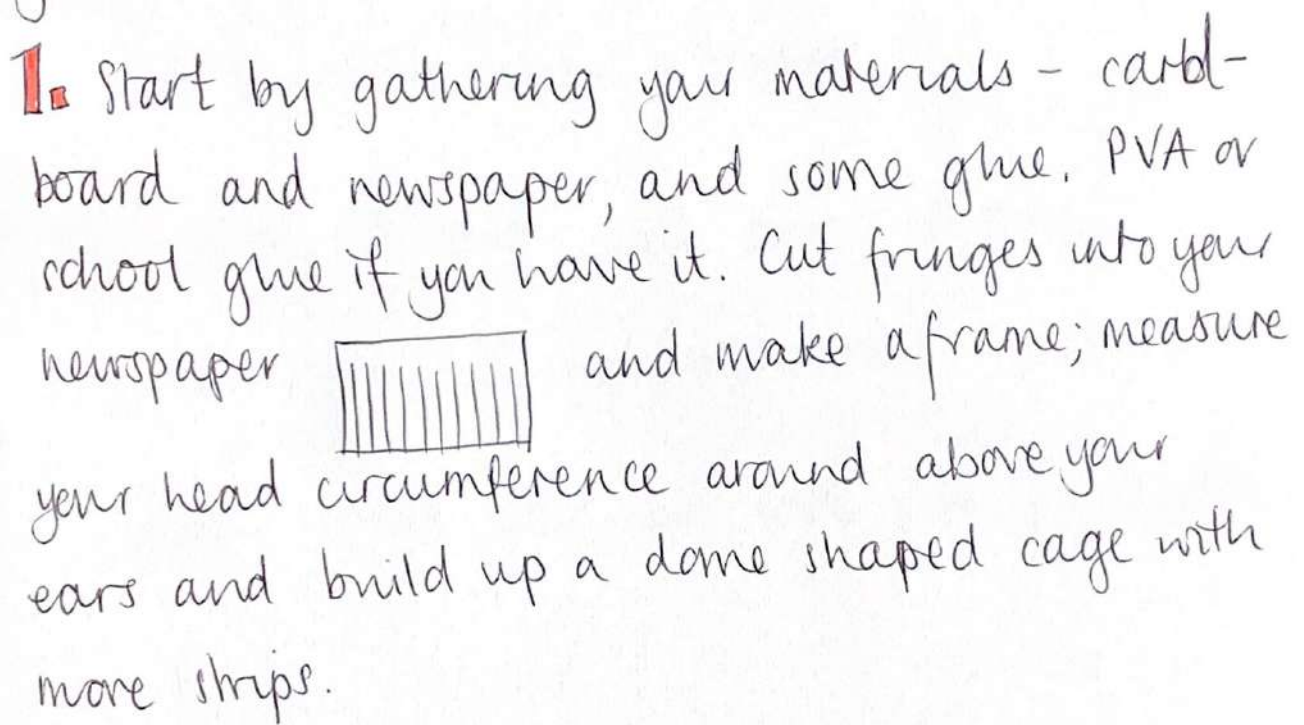 1. Start by gathering your materials - carbl-
board and newspaper, and some glue. PVA or
school glue if you have it. Cut fringes into your
newspaper and make a frame; measure
your head circumference around above your
ears and build up a dome shaped cage with
more strips.